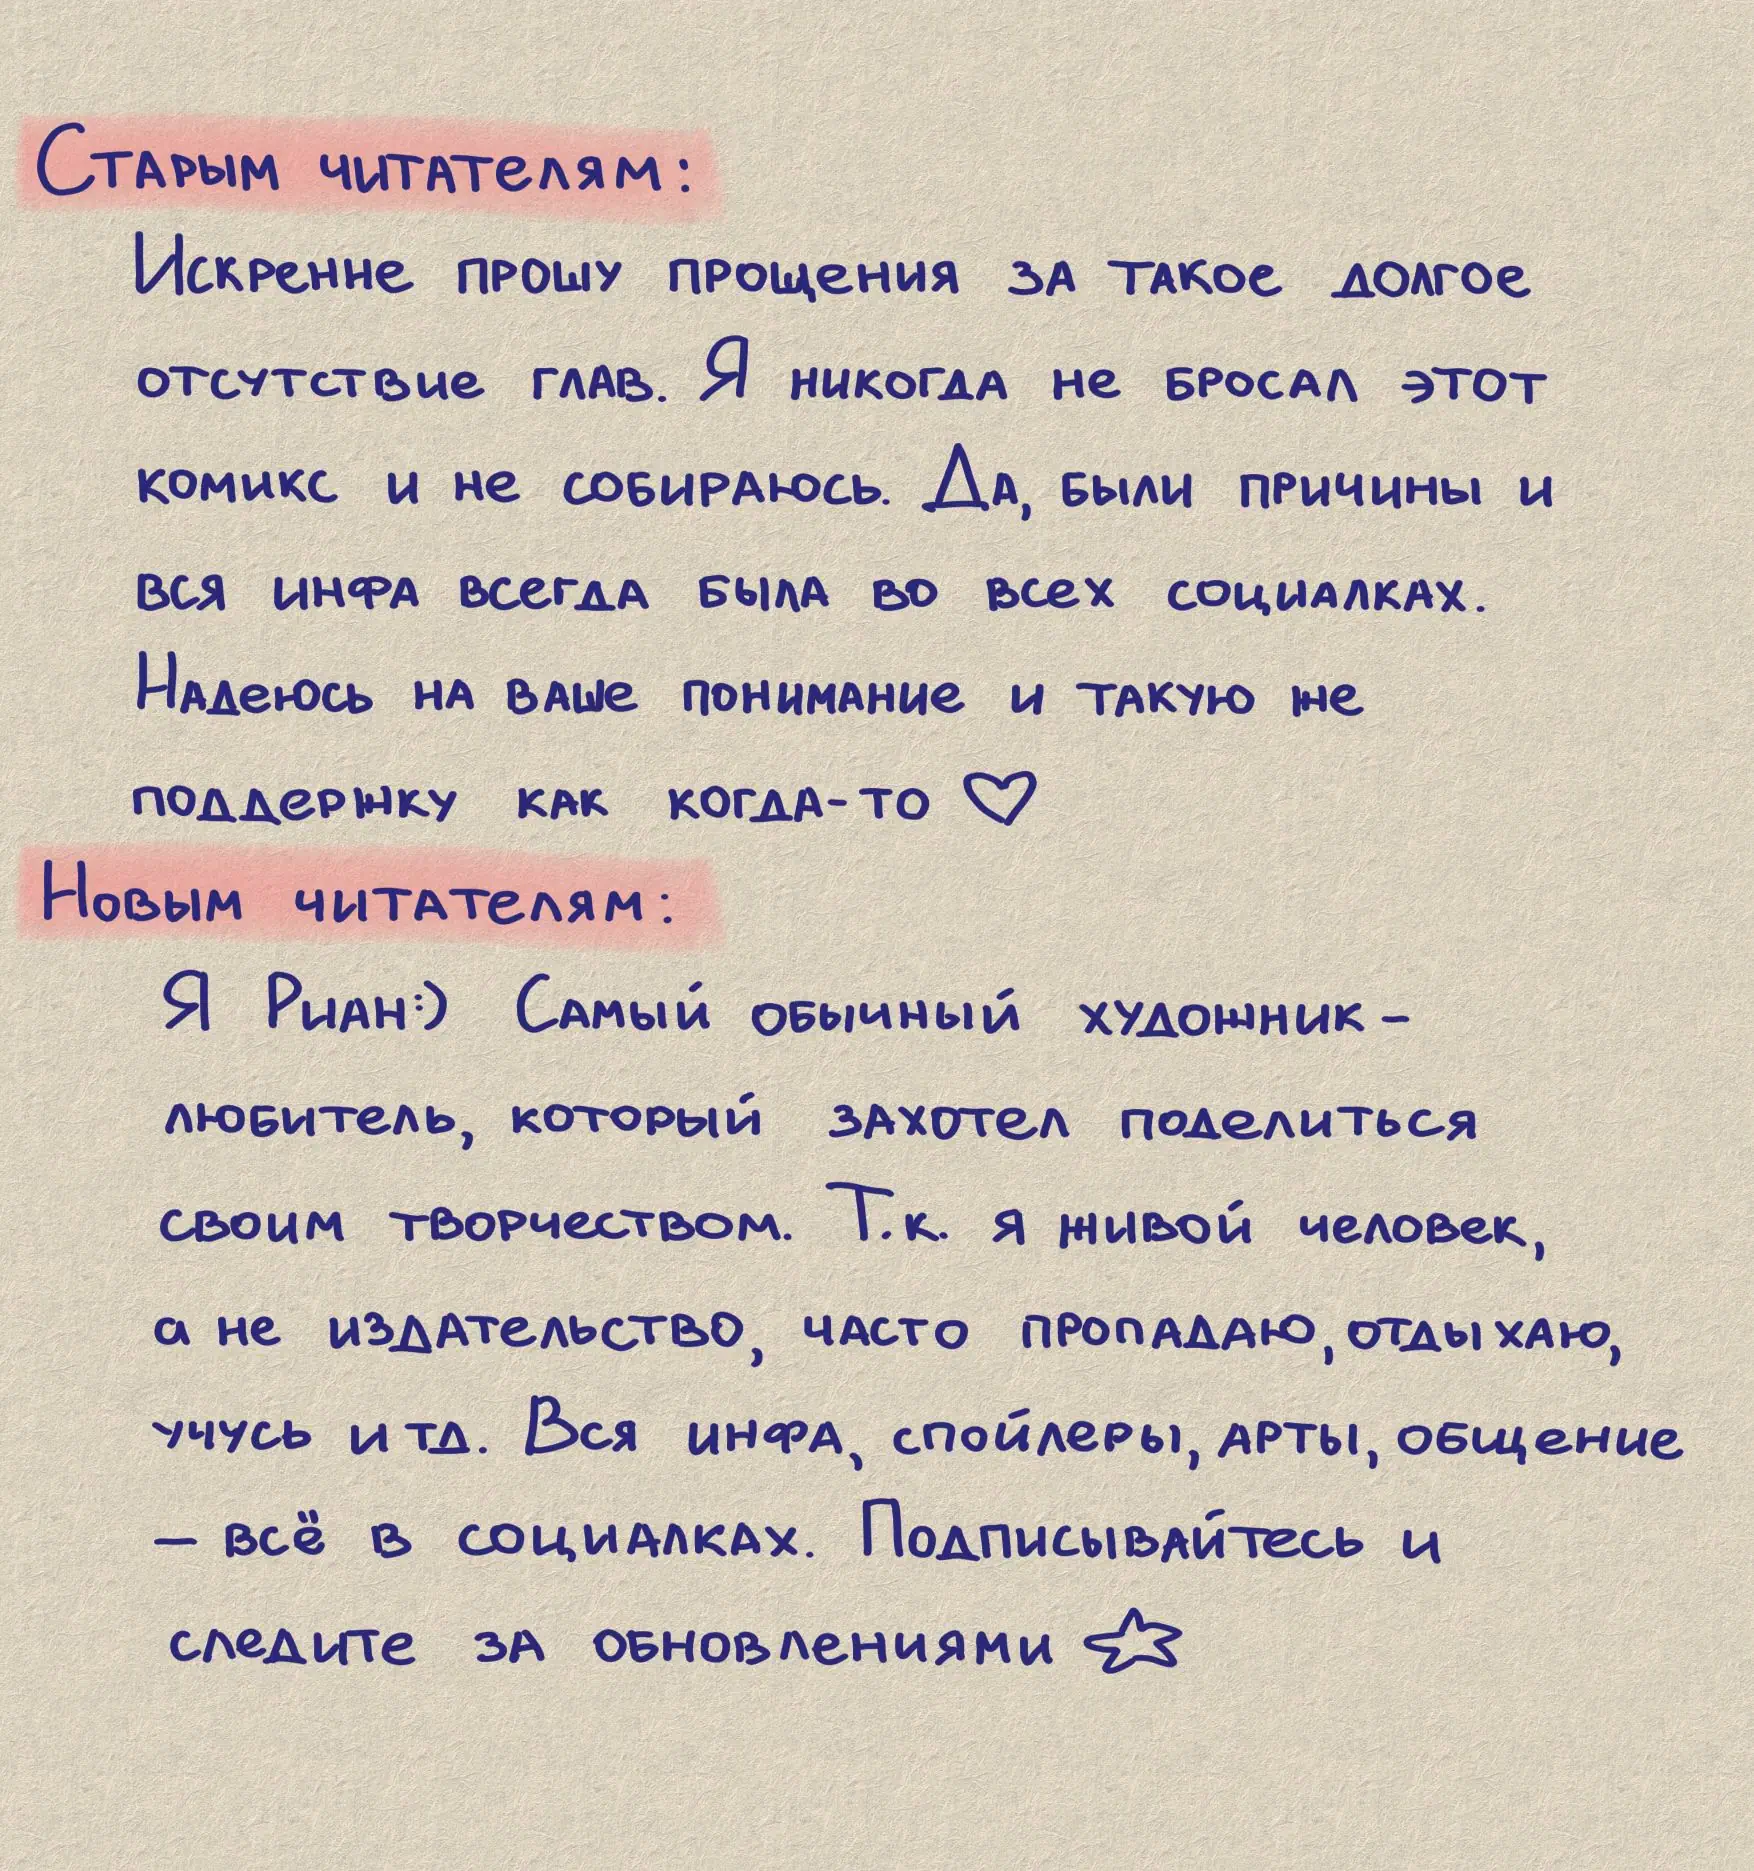 Старым читателям:
Искренне прошу прощения за такое долгое
отсутствие глав. Я никогда не бросал этот
комикс и не собираюсь. Да, были причины и
вся инфа всегда была во всех социалках.
Надеюсь на ваше понимание и такую же
поддержку как когда-то ♡
Новым читателям:
Я Риан:) Самый обычный художник -
любитель, который захотел поделиться
своим творчеством. Т.к. я живой человек,
а не издательство, часто пропадаю, отдыхаю,
учусь и тд. Вся инфа, спойлеры, арты, общение
— всё в социалках. Подписывайтесь и
следите за обновлениями ☆